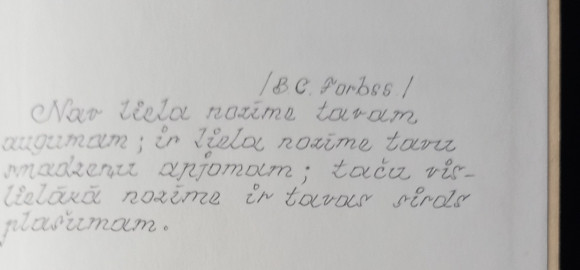 /B.C. Forbss/
Nav liela nozīme tavam
augumam; ir liela nozīme tavu
smadzeņu apjomam; taču vis-
lielākā nozīme ir tavas sirds
plašumam.